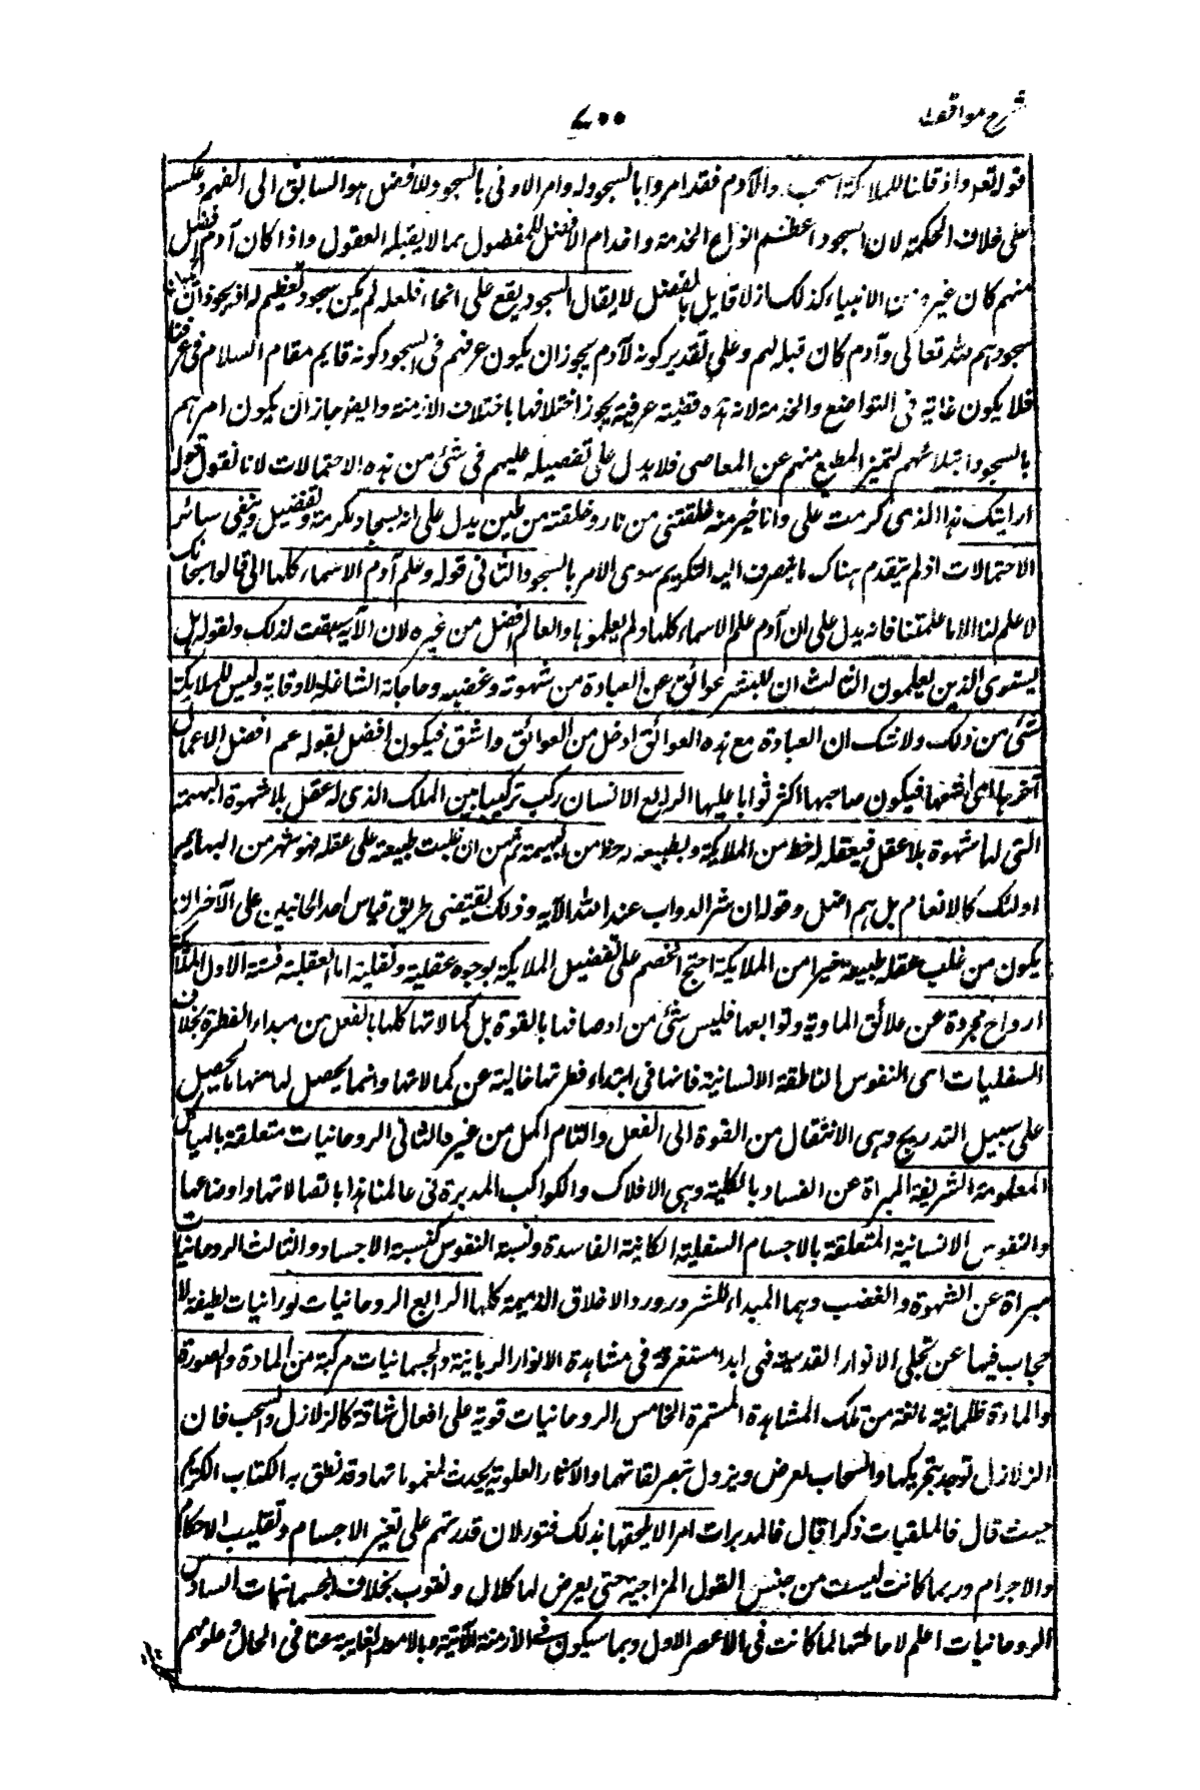 شرح مواقف
٧٠٠
قوله تعم واذ قلنا للملائكة اسجدوا لآدم فقد امروا بالسجود له وامر الادنى بالسجود للافضل هو السابق الى الفهم وعكسه
على خلاف الحكمة لان السجود اعظم انواع الخدمة واخدام الافضل للمفضول مما لا يقبله العقول واذا كان آدم افضل
منهم كان غيره من الانبياء كذلك اذ لا قايل بالفصل لا يقال السجود يقع على انحاء فلعله لم يكن سجود تعظيم له اذ يجوز ان
سجودهم لله تعالى وآدم كان قبله لهم وعلى تقدير كونه لآدم يجوز ان يكون عرفهم فى السجود كونه قايم مقام السلام فى عرفنا
فلا يكون غاية فى التواضع والخدمة لانه هذه قضية عرفية يجوز اختلافها باختلاف الازمنة وايضا جاز ان يكون امرهم
بالسجود ابتلائهم لتميز المطيع منهم عن المعاصى فلا يدل على تفضيله عليهم فى شئ من هذه الاحتمالات لانا نقول قوله
ارايتك هذا الذى كرمت على وانا خير منه خلقتنى من نار وخلقته من طين يدل على انه اسجاد تكرمة وتفضيل وينفى سائر
الاحتمالات اذ لم يتقدم هناك ما ينصرف اليه التكريم سوى الامر بالسجود والثانى قوله وعلم آدم الاسماء كلها الى قالوا سبحانك
لا علم لنا الا ما علمتنا فانه يدل على ان آدم علم الاسماء كلها ولم يعلموها والعالم افضل من غيره لان الآية سيقت لذلك ولقوله هل
يستوى الذين يعلمون الثالث ان للبشر عوائق عن العبادة من شهوته وغضبه وحاجاته الشاغلة لاوقاته وليس للملائكة
شئ من ذلك ولا شك ان العبادة مع هذه العوائق ادخل من العوائق واشق فيكون افضل لقوله عم افضل الاعمال
احمزها اى اشقها فيكون صاحبها اكثر ثوابا عليها الرابع الانسان ركب تركيبا بين الملك الذى له عقل بلا شهوة البهيمة
التى لها شهوة بلا عقل فبعقله له حظ من الملائكة وبطبيعه له حظ من البهيمة ثم من ان غلبت طبيعته على عقله فهو شر من البهايم
اولئك كالانعام بل هم اضل وقوله ان شر الدواب عند الله الآية وذلك يقتضى طريق قياس احد الجانبين على الآخر ان
يكون من غلب عقله طبيعته خيرا من الملائكة احتج الخصم على تفضيل الملائكة بوجوه عقلية ونقلية اما العقلية فستة الاول الملائكة
ارواح مجردة عن علائق المادية وتوابعها فليس شئ من اوصافها بالقوة بل كمالاتها كلها بالفعل من مبداء الفطرة بخلاف
السفليات اى النفوس الناطقة الانسانية فانها فى ابتداء فطرتها خالية عن كمالاتها وانما يحصل لها منها ما يحصل
على سبيل التدريج وهى الانتقال من القوة الى الفعل والتام اكمل من غيره الثانى الروحانيات متعلقة بالهياكل
المعلومة الشريفة المبراة عن الفساد بالكلية وهى الافلاك والكواكب المدبرة فى عالمنا هذا باتصالاتها واوضاعها
والنفوس الانسانية المتعلقة بالاجسام السفلية الكائنة الفاسدة ونسبة النفوس كنسبة الاجساد والثالث الروحانيات
مبراة عن الشهوة والغضب وهما المبداء للشرور ورد الاخلاق الذميمة كلها الرابع الروحانيات نورانيات لطيفة لا
حجاب فيها عن تجلى الانوار القدسية فهى ابدا مستغرقة فى مشاهدة الانوار الربانية والجسمانيات مركبة من المادة والصورة
والمادة ظلمانية مانعة من تلك المشاهدة المستمرة الخامس الروحانيات قوية على افعال شاقة كالزلازل والسحب فان
الزلازل توجد بتحريكها والسحاب لعرض ويزول بتصرفاتها والآثار العلوية يحدث بمعوناتها وقد نطق به الكتاب الكريم
حيث قال فالملقيات ذكرا قال فالمدبرات امرا لا يلحقها بذلك فتور لان قدرتهم على تغير الاجسام وتقليب الاحكام
والاجرام وربما كانت ليست من جنس القوى المزاجية حتى يعرض لها كلال ولغوب بخلاف الجسمانيات السادس
الروحانيات اعلم لاحاطتها لما كانت فى الاعصر الاول وبما سيكون فى الازمنة الآتية وبالامور الغايبة عنا فى الحال علومهم